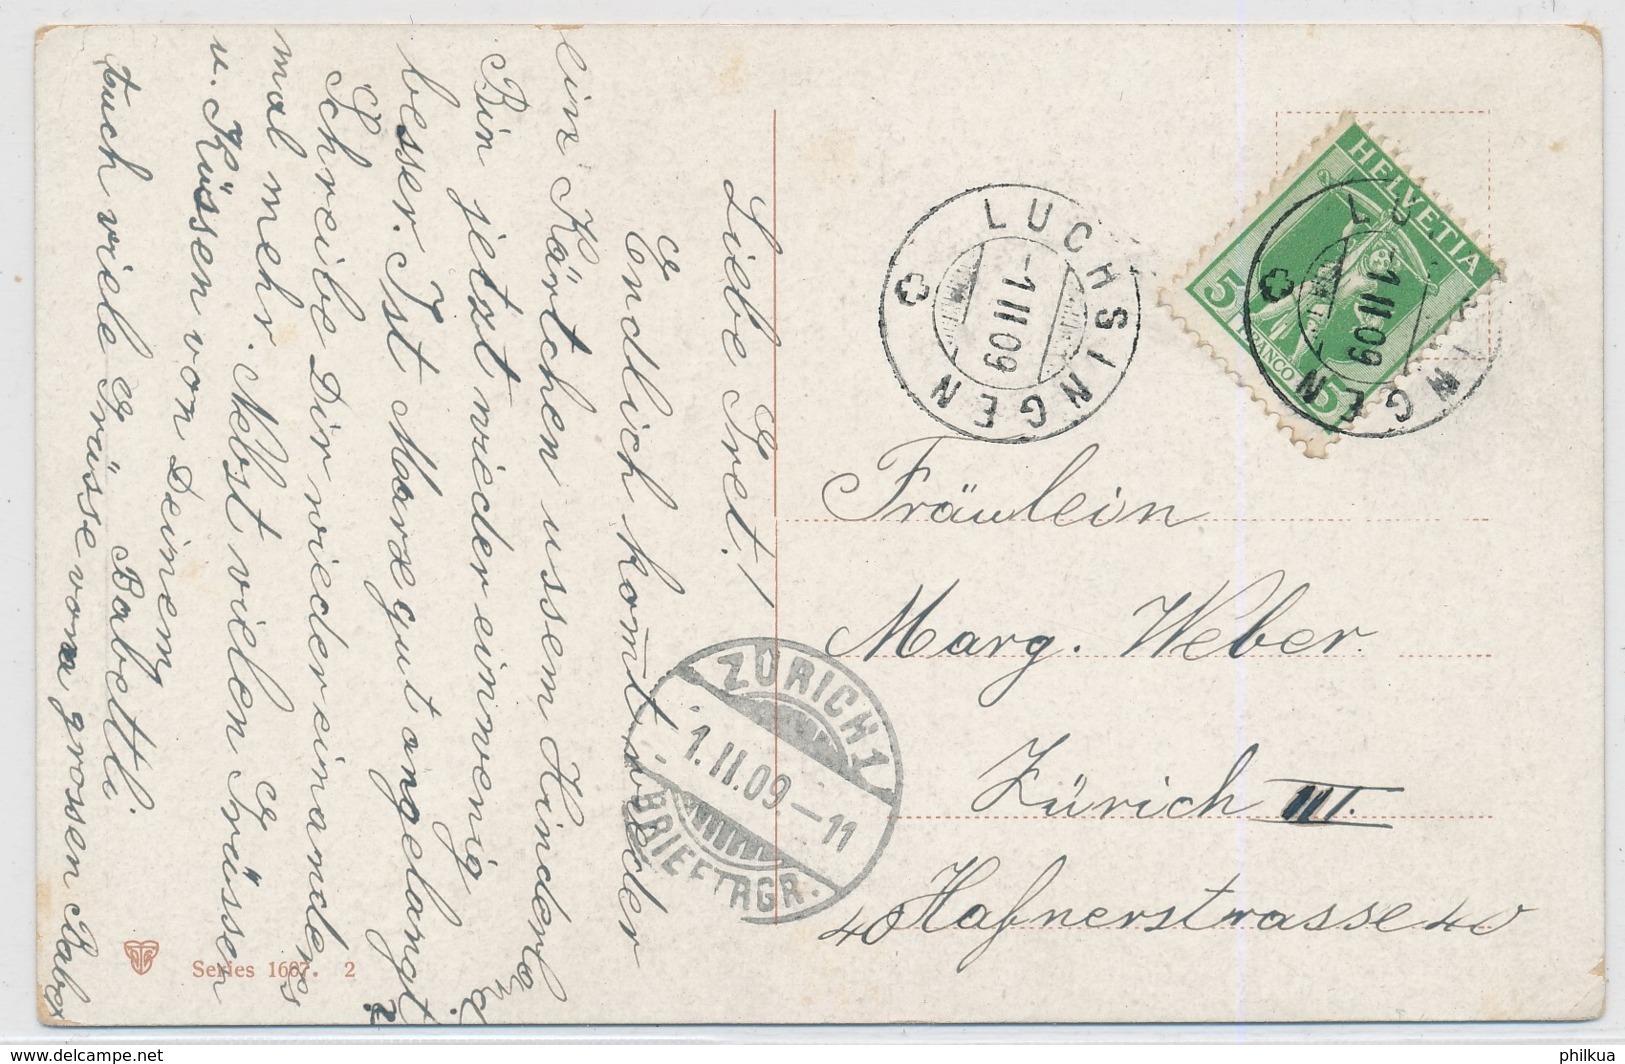 Liebe Gret!
Endlich komt wieder
ein Kärtchen ussem Hinderland.
Bin jetzt wieder ein wenig
besser. Ist Marx gut angelangt?
Schreibe Dir wieder einanders
mal mehr. Nebst vielen Grüssen
u. Küssen von Deinem
Babettli.
Euch viele Grüsse vom grossen Babet
LUCHSINGEN
-1 II 09
HELVETIA
5
FRANCO
5
LUCHSINGEN
-1 II 09
Fräulein
Marg. Weber.
Zürich III.
40 Hafnerstrasse 40
ZÜRICH 1
1.II.09–11
BRIEFTRGR.
Series 1667. 2
www.delcampe.net
philkua